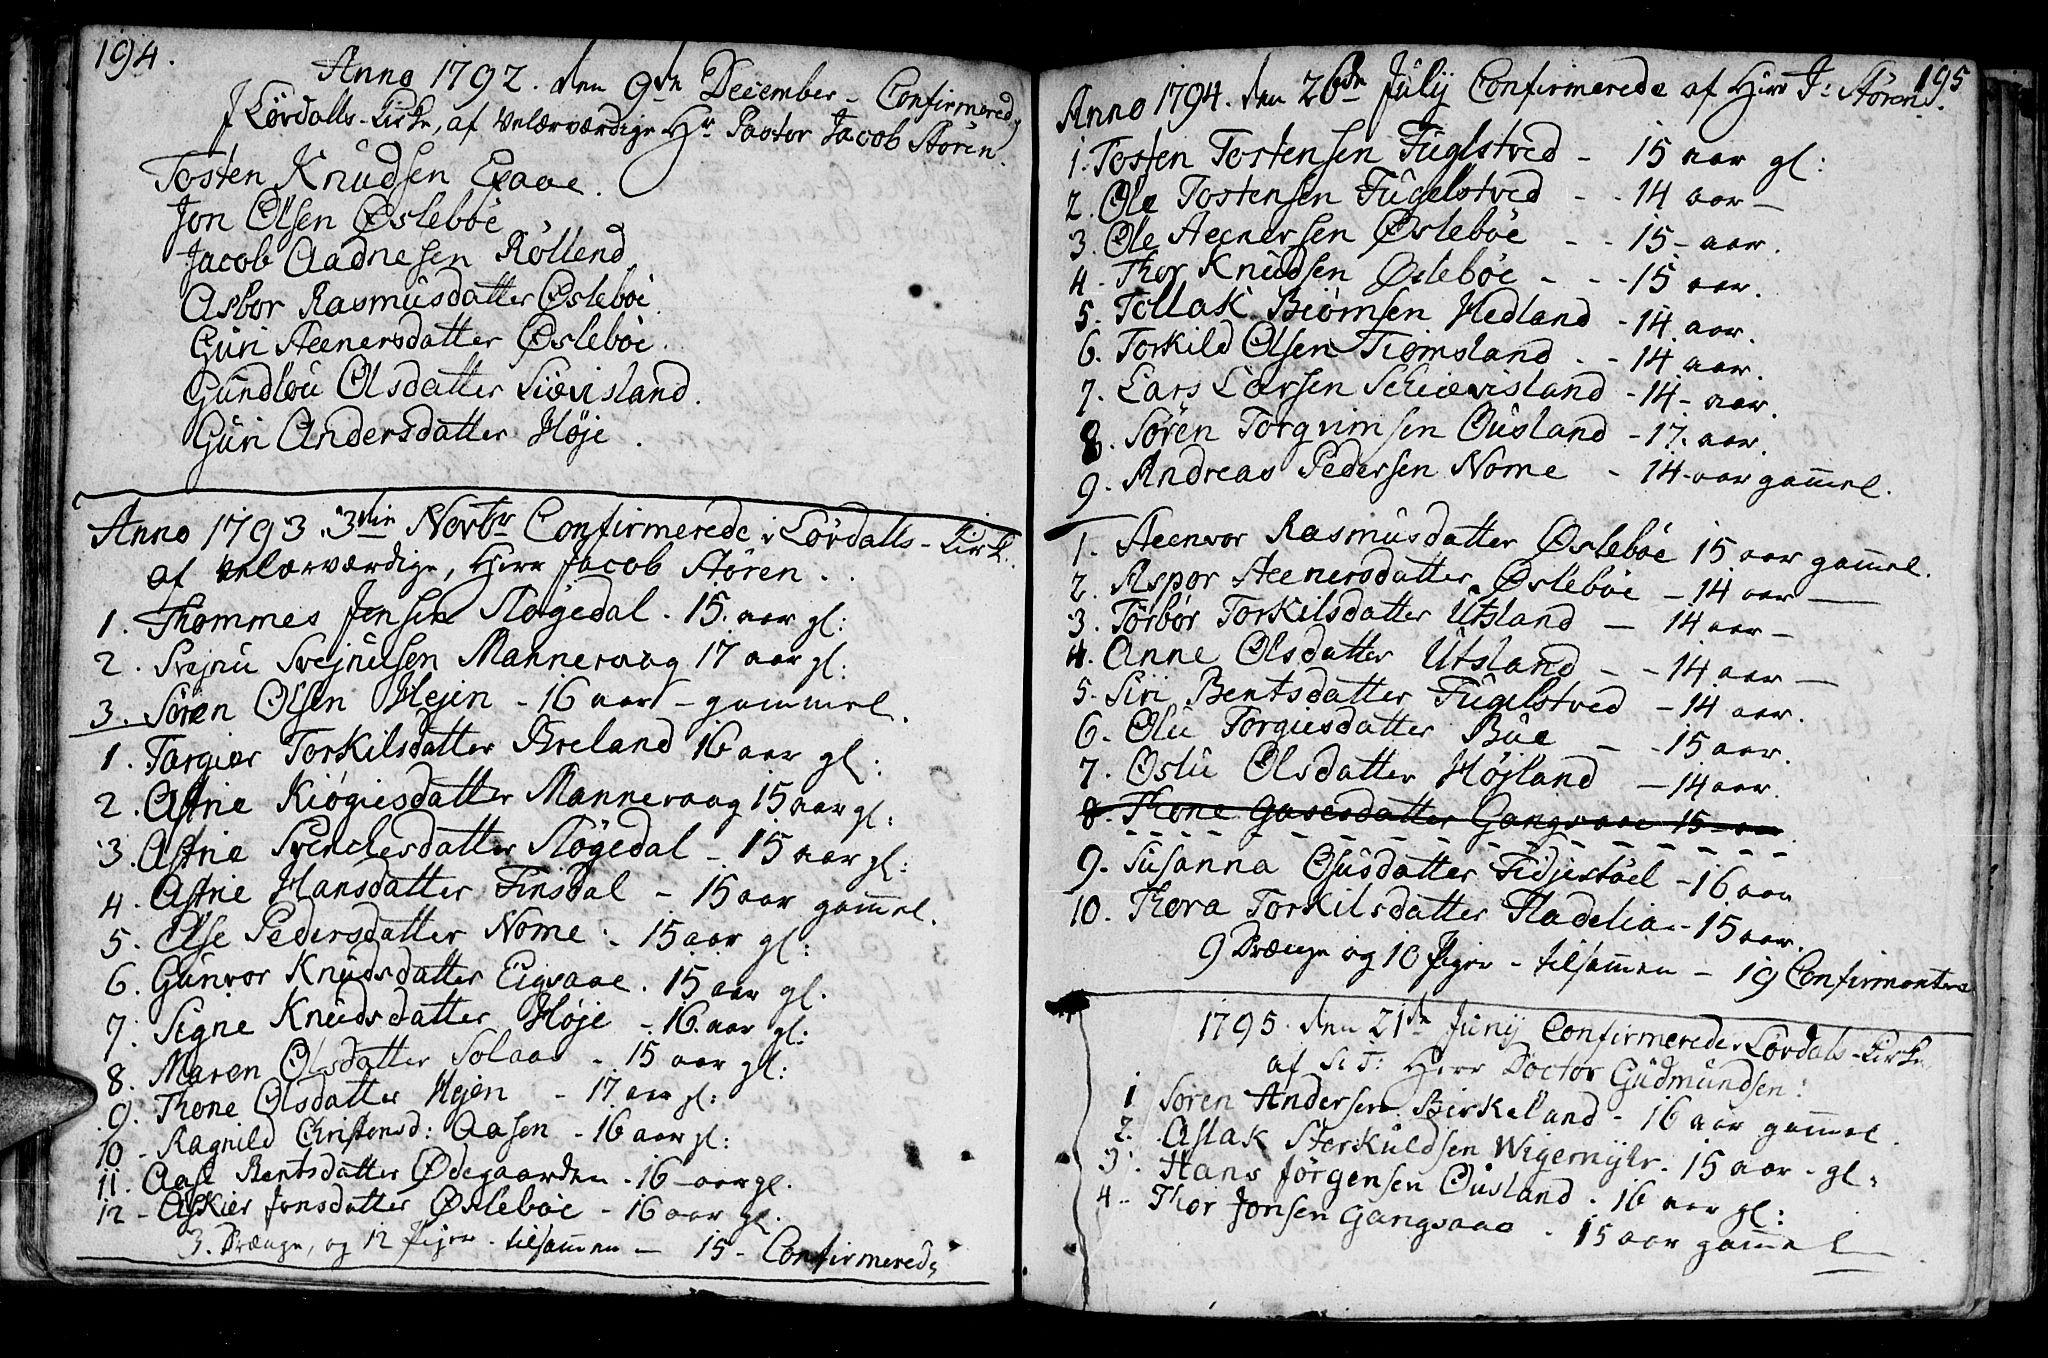 194.
Anno 1792. den 9de December - Confirmered
I Lövdalls-Kirke, af Velærværdige Hr Pastor Jacob Stören.
Tosten Knudsen Eaae.
Jon Olsen Øslebøe
Jacob Aadnesen Röllend
Asbor Rasmusdatter Øslebøe
Guri Aenersdatter Øslebøe.
Gundlou Olsdatter Siævisland.
Guri Andersdatter Høje.
Anno 1793. 3die Novbr Confirmerede i Lövdalls-Kirke
af Velærværdige, Herr Jacob Stören.
1. Thommes Jensen Slögedal. 15. aar gl:
2. Svejnu Svejnusen Mannevaag 17 aar gl:
3. Sören Olsen Hejen - 16 aar - gammel.
1. Targier Torkilsdatter Breland 16 aar gl:
2. Astrie Kiögiesdatter Mannevaag 15 aar gl:
3. Astrie Svenchesdatter Slögedal - 15 aar gl:
4. Astrie Hansdatter Finsdal - 15 aar gam̄el.
5. Else Pedersdatter Nome - 15 aar gl:
6. Gunvor Knudsdatter Eigvaae. 15 aar gl.
7. Signe Knudsdatter Høje - 16. aar gl:
8. Maren Olsdatter Solaas - 15 aar gl:
9. Thone Olsdatter Hejen - 17 aar gl:
10 - Ragnild Christensd: Aasen - 16 aar gl:
11. Aase Bentsdatter Ødegaarden - 16 - aar gl.
12 - Askier Jonsdatter Øslebøe - 16 aar gl.
3. Drænge, og 12 Piger - tilsam̄en - 15 - Confirmerede
195
Anno 1794. den 26de July Confirmerede af Herr J: Stören.
1. Tosten Tostensen Fuglstved - 15 aar gl:
2. Ole Tostensen Fugelstved - - 14 aar -
3. Ole Aenersen Øslebøe - - 15 - aar.
4. Thor Knudsen Øslebøe - - - 15 aar.
5. Tollak Biörnsen Hedland - 14 aar.
6. Torkild Olsen Tiomsland - - 14 aar.
7. Lars Larsen Schiævisland - 14 - aar.
8. Sören Torgrimsen Ousland - 17. aar.
9. Andreas Pedersen Nome - 14 - aar gam̄el.
1. Aenvor Rasmusdatter Øslebøe 15 aar gam̄el.
2. Aspor Aenersdatter Øslebøe - 14 aar -
3. Törbör Torkilsdatter Utsland - 14 aar -
4. Anne Olsdatter Utsland - - 14 aar -
5. Siri Bentsdatter Fugelstved - 14 aar.
6. Olu Torgusdatter Bue - - 15 aar.
7. Oslu Olsdatter Højland - 14 aar.
8. Thone Gasesdatter Gangsaae 15 - aar
9. Susanna Osusdatter Fidjestöel - 16 aar
10. Thora Torkilsdatter Fladelia - 15 aar.
9 Drænge og 10 Piger - tilsam̄en - 19 Confirmantere
1795. den 21de Juny Confirmerede i Lövdals-Kirke
af S: T: Herr Doctor Gudmundsen:
1 Sören Andersen Birkeland - 16 aar gam̄el.
2. Aslak Sterkuldsen Wigemyhr. 15 aar - gl.
3. Hans Jörgensen Ousland. 16 aar gl:
4. Thor Jonsen Gangsaae - 15 aar gam̄el